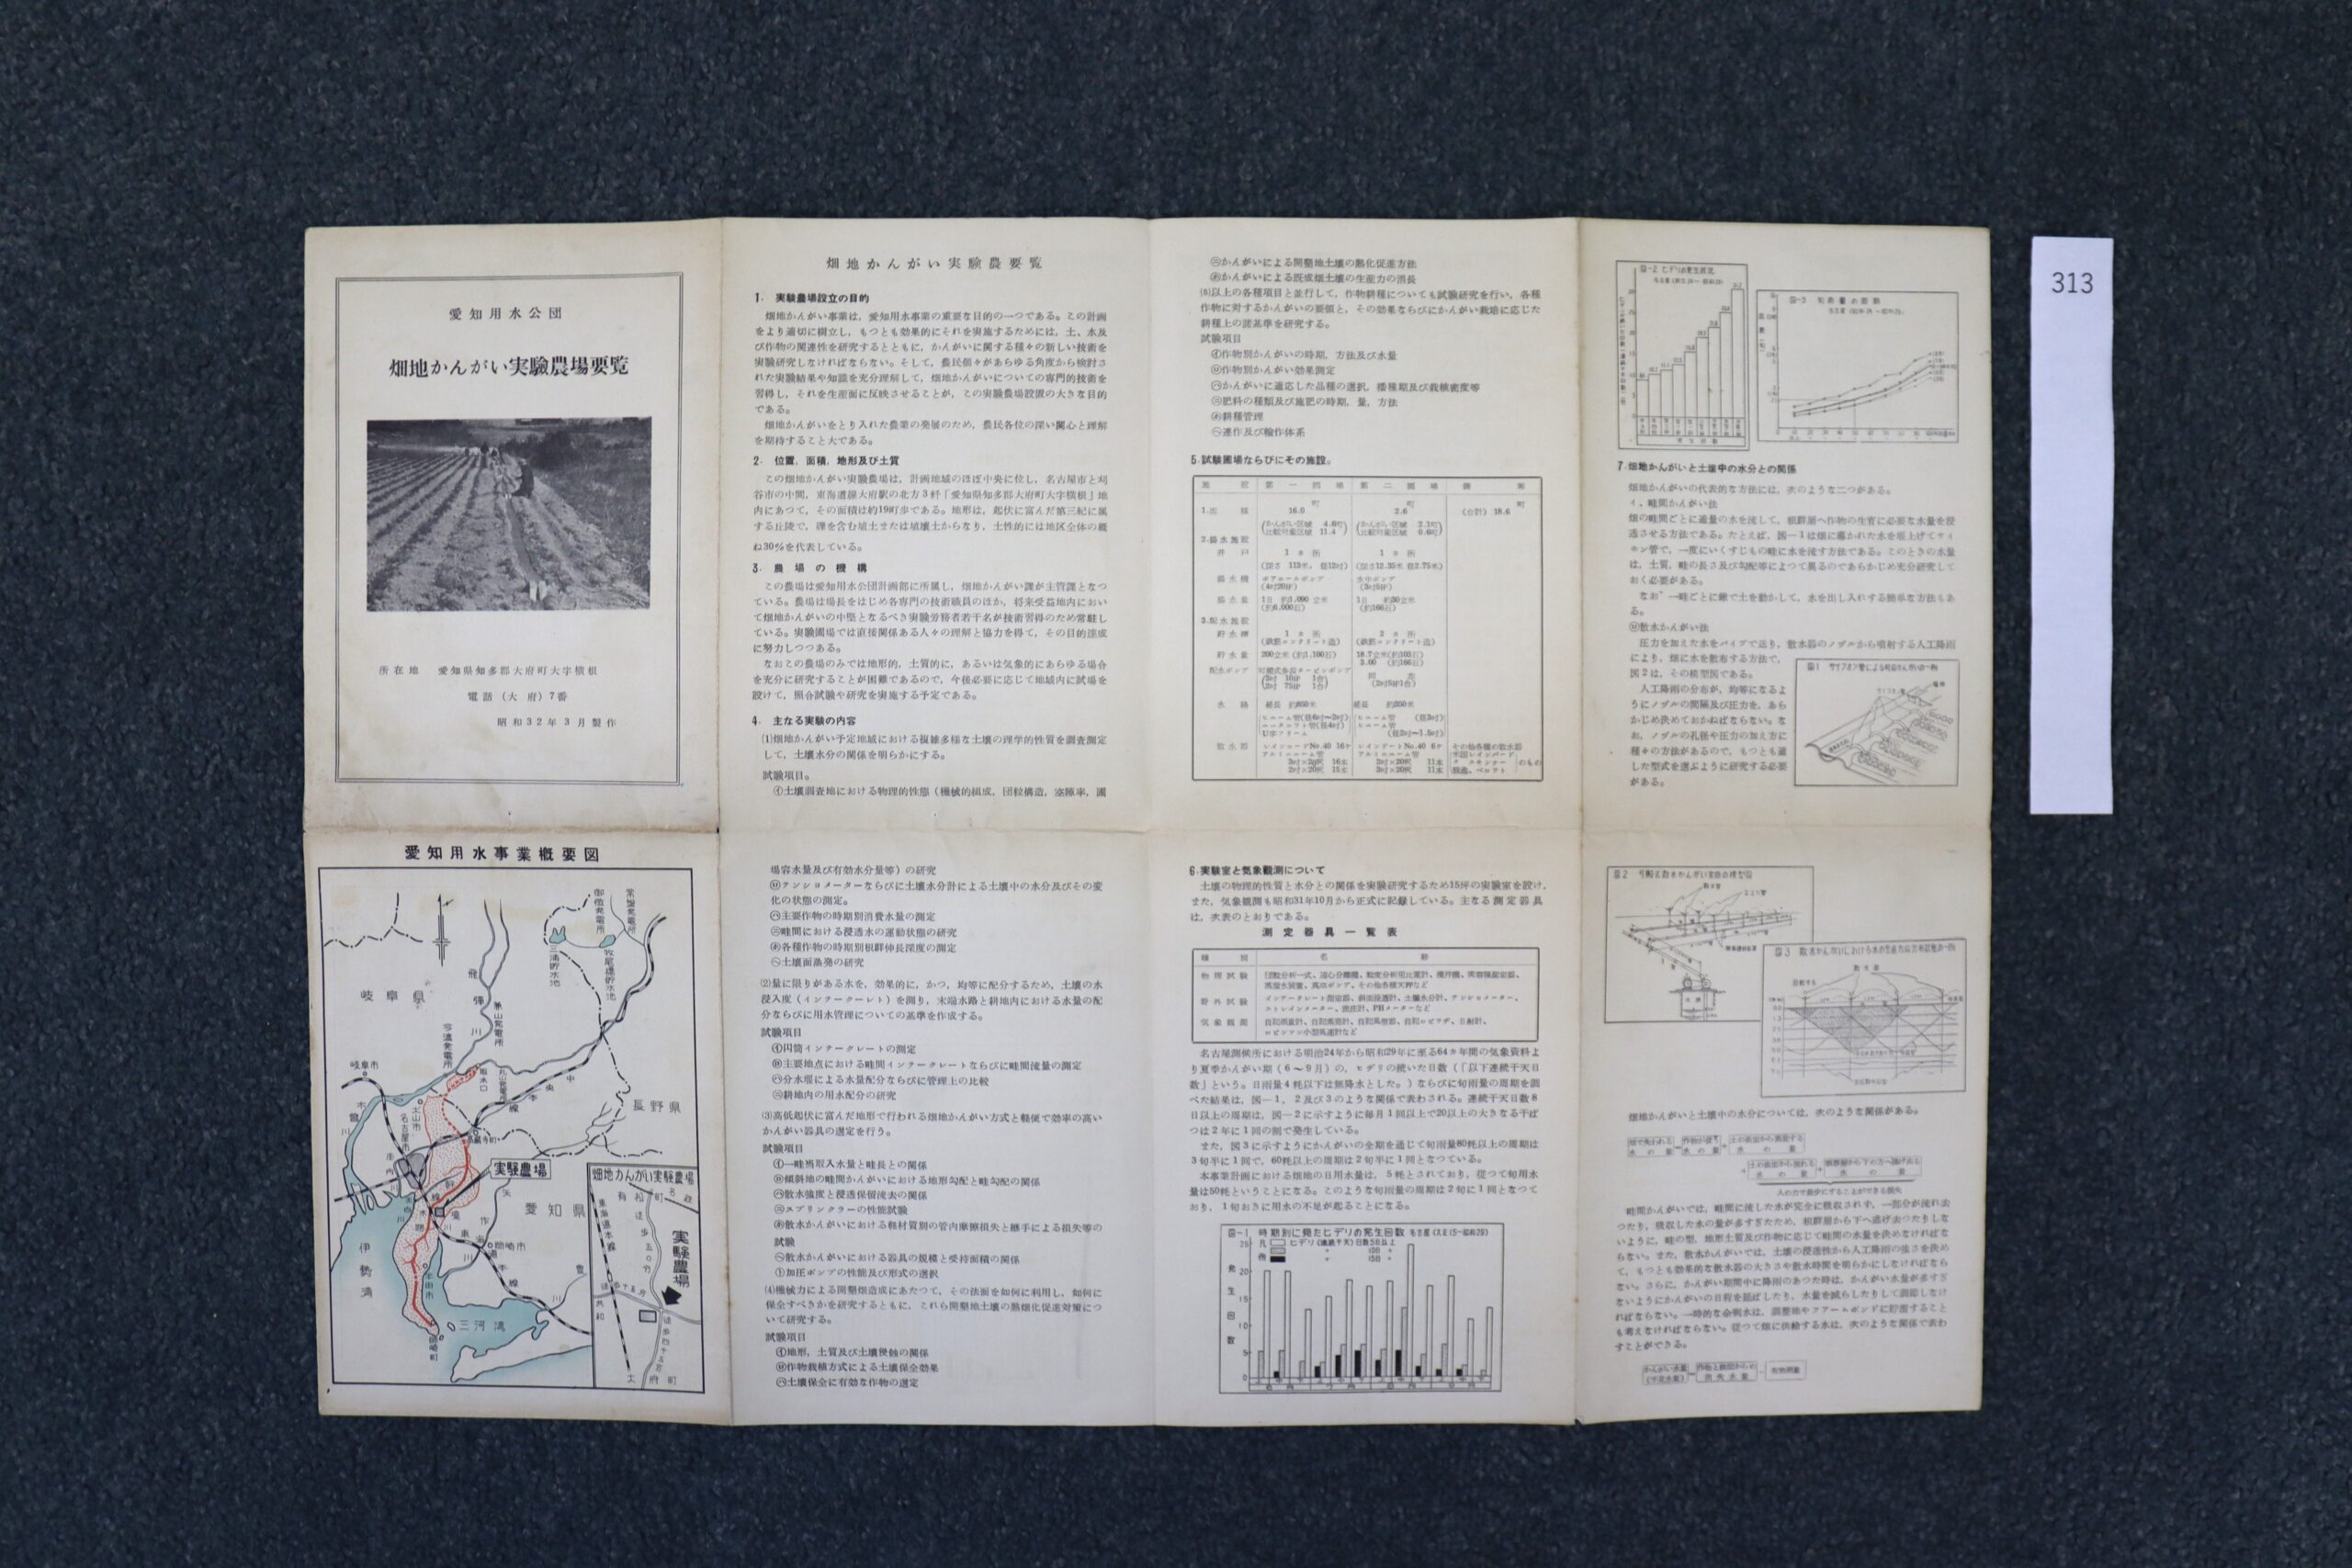 愛知用水公団
畑地かんがい実験農場要覧
所在地 愛知県知多郡大府町大字横根
電話(大府)7番
昭和32年3月製作
畑地かんがい実験農要覧
1. 実験農場設立の目的
畑地かんがい事業は、愛知用水事業の重要な目的の一つである。この計画
をより適切に樹立し、もつとも効果的にそれを実施するためには、土、水及
び作物の関連性を研究するとともに、かんがいに関する種々の新しい技術を
実験研究しなければならない。そして、農民個々があらゆる角度から検討さ
れた実験結果や知識を充分理解して、畑地かんがいについての専門的技術を
習得し、それを生産面に反映させることが、この実験農場設置の大きな目的
である。
畑地かんがいをとり入れた農業の発展のため、農民各位の深い関心と理解
を期待すること大である。
2. 位置、面積、地形及び土質
この畑地かんがい実験農場は、計画地域のほぼ中央に位し、名古屋市と刈
谷市の中間、東海道線大府駅の北方3粁「愛知県知多郡大府町大字横根」地
内にあつて、その面積は約19町歩である。地形は、起伏に富んだ第三紀に属
する丘陵で、礫を含む埴土または埴壌土からなり、土性的には地区全体の概
ね30%を代表している。
3. 農場の機構
この農場は愛知用水公団計画部に所属し、畑地かんがい課が主管課となつ
ている。農場は場長をはじめ各専門の技術職員のほか、将来受益地内におい
て畑地かんがいの中堅となるべき実験労務者若干名が技術習得のため常駐し
ている。実験圃場では直接関係ある人々の理解と協力を得て、その目的達成
に努力しつつある。
なおこの農場のみでは地形的、土質的に、あるいは気象的にあらゆる場合
を充分に研究することが困難であるので、今後必要に応じて地域内に試場を
設けて、照合試験や研究を実施する予定である。
4. 主なる実験の内容
(1)畑地かんがい予定地域における複雑多様な土壌の理学的性質を調査測定
して、土壌水分の関係を明らかにする。
試験項目。
㋑土壌調査地における物理的性態(機械的組成、団粒構造、空隙率、圃
㋥かんがいによる開墾地土壌の熟化促進方法
㋭かんがいによる既成畑土壌の生産力の消長
(5)以上の各種項目と並行して、作物耕種についても試験研究を行い、各種
作物に対するかんがいの要領と、その効果ならびにかんがい栽培に応じた
耕種上の諸基準を研究する。
試験項目
㋑作物別かんがいの時期、方法及び水量
㋺作物別かんがい効果測定
㋩かんがいに適応した品種の選択、播種期及び栽植密度等
㋥肥料の種類及び施肥の時期、量、方法
㋭耕種管理
㋬連作及び輪作体系
5.試験圃場ならびにその施設。
施設 第一圃場 第二圃場 備考
1.面積 16.0町 2.6町 (合計)18.6町
(かんがい区域 4.6町 比較対象区域 11.4) (かんがい区域 2.1町 比較対象区域 0.6町)
2.揚水施設
井戸 1ヵ所 1ヵ所
(深さ 113米、径12吋) (深さ12.35米 径2.75米)
揚水機 ボアホールポンプ 水中ポンプ
揚水量 1日 約1,090立米 1日 約30立米
(約6,000石) (約166石)
3.配水施設
貯水槽 1ヵ所 2ヵ所
(鉄筋コンクリート造) (鉄筋コンクリート造)
貯水量 200立米(約1,100石) 18.7立米(約103石)
水路 延長 約850米 延長 約350米
図-2 ヒデリの発生状況
図-3 旬雨量の周期
7.畑地かんがいと土壌中の水分との関係
畑地かんがいの代表的な方法には、次のような二つがある。
イ、畦間かんがい法
畑の畦間ごとに適量の水を流して、根群層へ作物の生育に必要な水量を浸
透させる方法である。たとえば、図-1は畑に導かれた水を堰上げてサイ
ホン管で、一度にいくすじもの畦に水を流す方法である。このときの水量
は、土質、畦の長さ及び勾配等によつて異るのであらかじめ充分研究して
おく必要がある。
なお一畦ごとに鍬で土を動かして、水を出し入れする簡単な方法もあ
る。
㋺散水かんがい法
圧力を加えた水をパイプで送り、散水器のノヅルから噴射する人工降雨
により、畑に水を散布する方法で、
図2は、その模型図である。
人工降雨の分布が、均等になるよ
うにノヅルの間隔及び圧力を、あら
かじめ決めておかねばならない。な
お、ノヅルの孔径や圧力の加え方に
種々の方法があるので、もつとも適
した型式を選ぶように研究する必要
がある。
図1 サイフオン管による畦間かんがいの一例
愛知用水事業概要図
岐阜県
長野県
愛知県
岐阜市
犬山市
名古屋市
岡崎市
半田市
師崎町
飛騨川
木曽川
矢作川
豊川
三浦貯水池
牧尾堤貯水池
御岳発電所
常盤発電所
兼山発電所
今渡発電所
丸山発電所
取水口
中央本線
東海道本線
高蔵寺町
伊勢湾
三河湾
実験農場
畑地かんがい実験農場
有松町
徒歩五〇分
東海道本線
共和
実験農場
徒歩四十五分
大府町
場容水量及び有効水分量等)の研究
㋺テンシヨメーターならびに土壌水分計による土壌中の水分及びその変
化の状態の測定。
㋩主要作物の時期別消費水量の測定
㋥畦間における浸透水の運動状態の研究
㋭各種作物の時期別根群伸長深度の測定
㋬土壌面蒸発の研究
(2)量に限りがある水を、効果的に、かつ、均等に配分するため、土壌の水
浸入度(インテークーレト)を測り、末端水路と耕地内における水量の配
分ならびに用水管理についての基準を作成する。
試験項目
㋑円筒インテークレートの測定
㋺主要地点における畦間インテークレートならびに畦間流量の測定
㋩分水堰による水量配分ならびに管理上の比較
㋥耕地内の用水配分の研究
(3)高低起伏に富んだ地形で行われる畑地かんがい方式と軽便で効率の高い
かんがい器具の選定を行う。
試験項目
㋑一畦当取入水量と畦長との関係
㋺傾斜地の畦間かんがいにおける地形勾配と畦勾配の関係
㋩散水強度と浸透保留流去の関係
㋥スプリンクラーの性能試験
㋭散水かんがいにおける軽材質別の管内摩擦損失と継手による損失等の
試験
㋬散水かんがいにおける器具の規模と受持面積の関係
㋣加圧ポンプの性能及び形式の選択
(4)機械力による開墾畑造成にあたつて、その法面を如何に利用し、如何に
保全すべきかを研究するともに、これら開墾地土壌の熟畑化促進対策につ
いて研究する。
試験項目
㋑地形、土質及び土壌侵蝕の関係
㋺作物栽植方式による土壌保全効果
㋩土壌保全に有効な作物の選定
6.実験室と気象観測について
土壌の物理的性質と水分との関係を実験研究するため15坪の実験室を設け、
また、気象観測も昭和31年10月から正式に記録している。主なる測定器具
は、次表のとおりである。
測定器具一覧表
種別 名称
物理試験
野外試験
気象観測
名古屋測候所における明治24年から昭和29年に至る64ヵ年間の気象資料よ
り夏季かんがい期(6~9月)の、ヒデリの続いた日数(「以下連続干天日
数」という。日雨量4粍以下は無降水とした。)ならびに旬雨量の周期を調
べた結果は、図-1、2及び3のような関係で表わされる。連続干天日数8
日以上の周期は、図-2に示すように毎月1回以上で20以上の大きなる干ば
つは2年に1回の割で発生している。
また、図3に示すようにかんがいの全期を通じて旬雨量80粍以上の周期は
3旬半に1回で、60粍以上の周期は2旬半に1回となつている。
本事業計画における畑地の日用水量は、5粍とされており、従つて旬用水
量は50粍ということになる。このような旬雨量の周期は2旬に1回となつて
おり、1旬おきに用水の不足が起ることになる。
図-1 時期別に見たヒデリの発生回数
発生回数
図2
図3
畑地かんがいと土壌中の水分については、次のような関係がある。
人の力で最少にすることができる損失
畦間かんがいでは、畦間に流した水が完全に吸収されず、一部分が流れ去
つたり、吸収した水の量が多すぎたため、根群層から下へ逃げ去つたりしな
いように、畦の型、地形土質及び作物に応じて畦間の水量を決めなければな
らない。また、散水かんがいでは、土壌の浸透性から人工降雨の強さを決め
て、もつとも効果的な散水器の大きさや散水時間を明らかにしなければなら
ない。さらに、かんがい期間中に降雨のあつた時は、かんがい水量が多すぎ
ないようにかんがいの日程を延ばしたり、水量を減らしたりして調節しなけ
ればならない。一時的な余剰水は、調整池やフアームポンドに貯溜すること
も考えなければならない。従つて畑に供給する水は、次のような関係で表わ
すことができる。
313